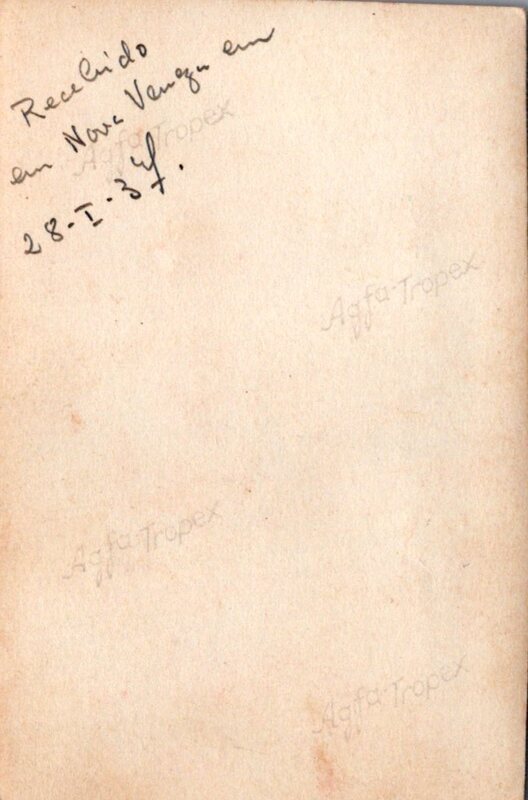 Recebido
em Nova Veneza em
28-I-37.
Agfa-Tropex
Agfa-Tropex
Agfa-Tropex
Agfa-Tropex